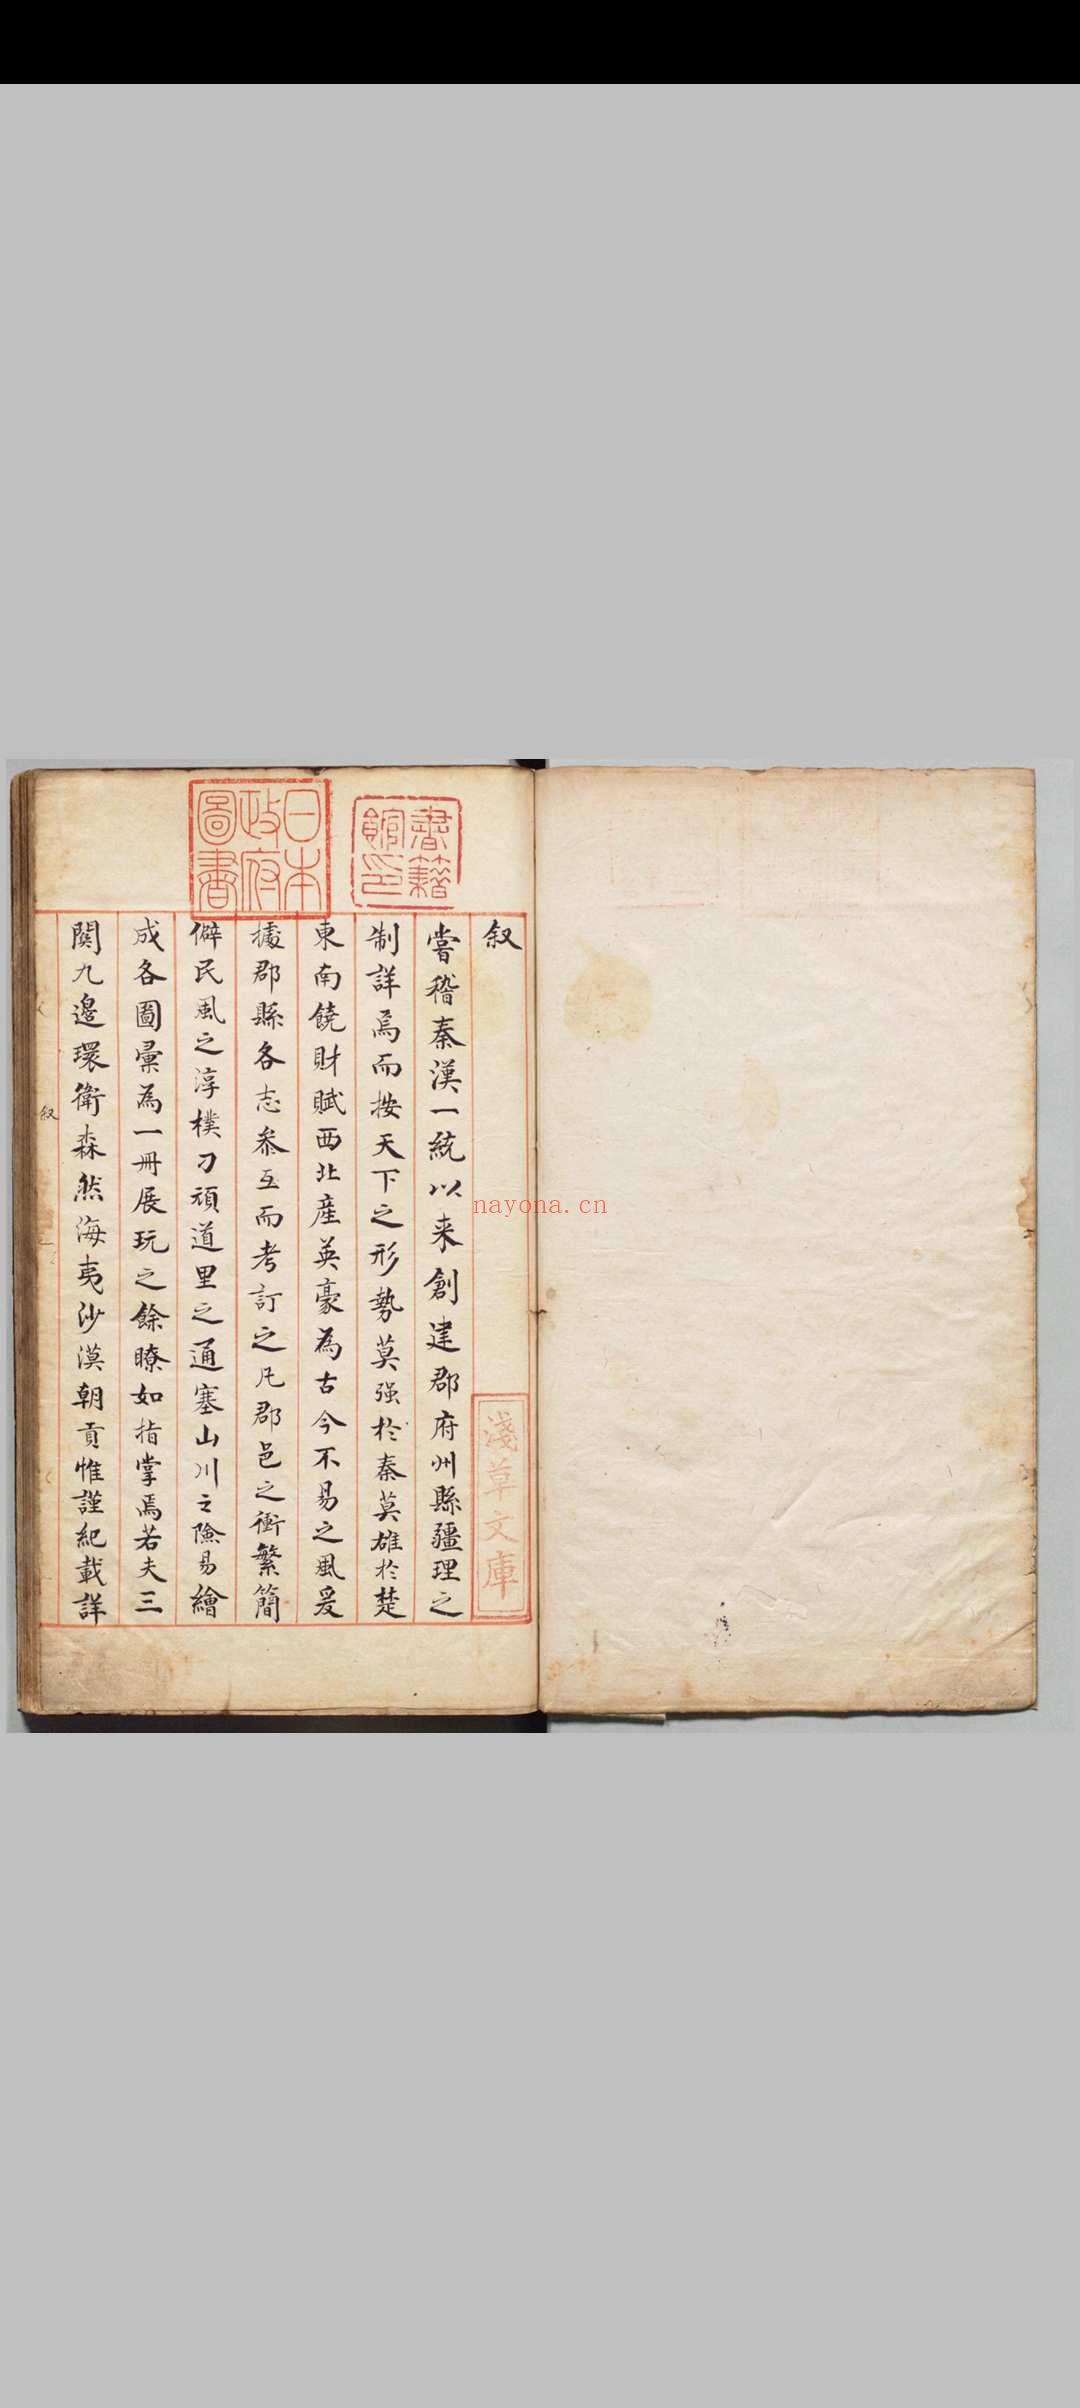 叙
嘗稽秦漢一統以来創建郡府州縣疆理之
制詳焉而按天下之形勢莫强於秦莫雄於楚
東南饒財賦西北産英豪為古今不易之風爰
據郡縣各志叅互而考訂之凡郡邑之衝繁簡
僻民風之淳樸刁頑道里之通塞山川之險易繪
成各圖彙為一冊展玩之餘瞭如指掌焉若夫三
関九邊環衛森然海夷沙漠朝貢惟謹紀載詳
叙
書籍館印
日本政府圖書
淺草文庫
nayona.cn